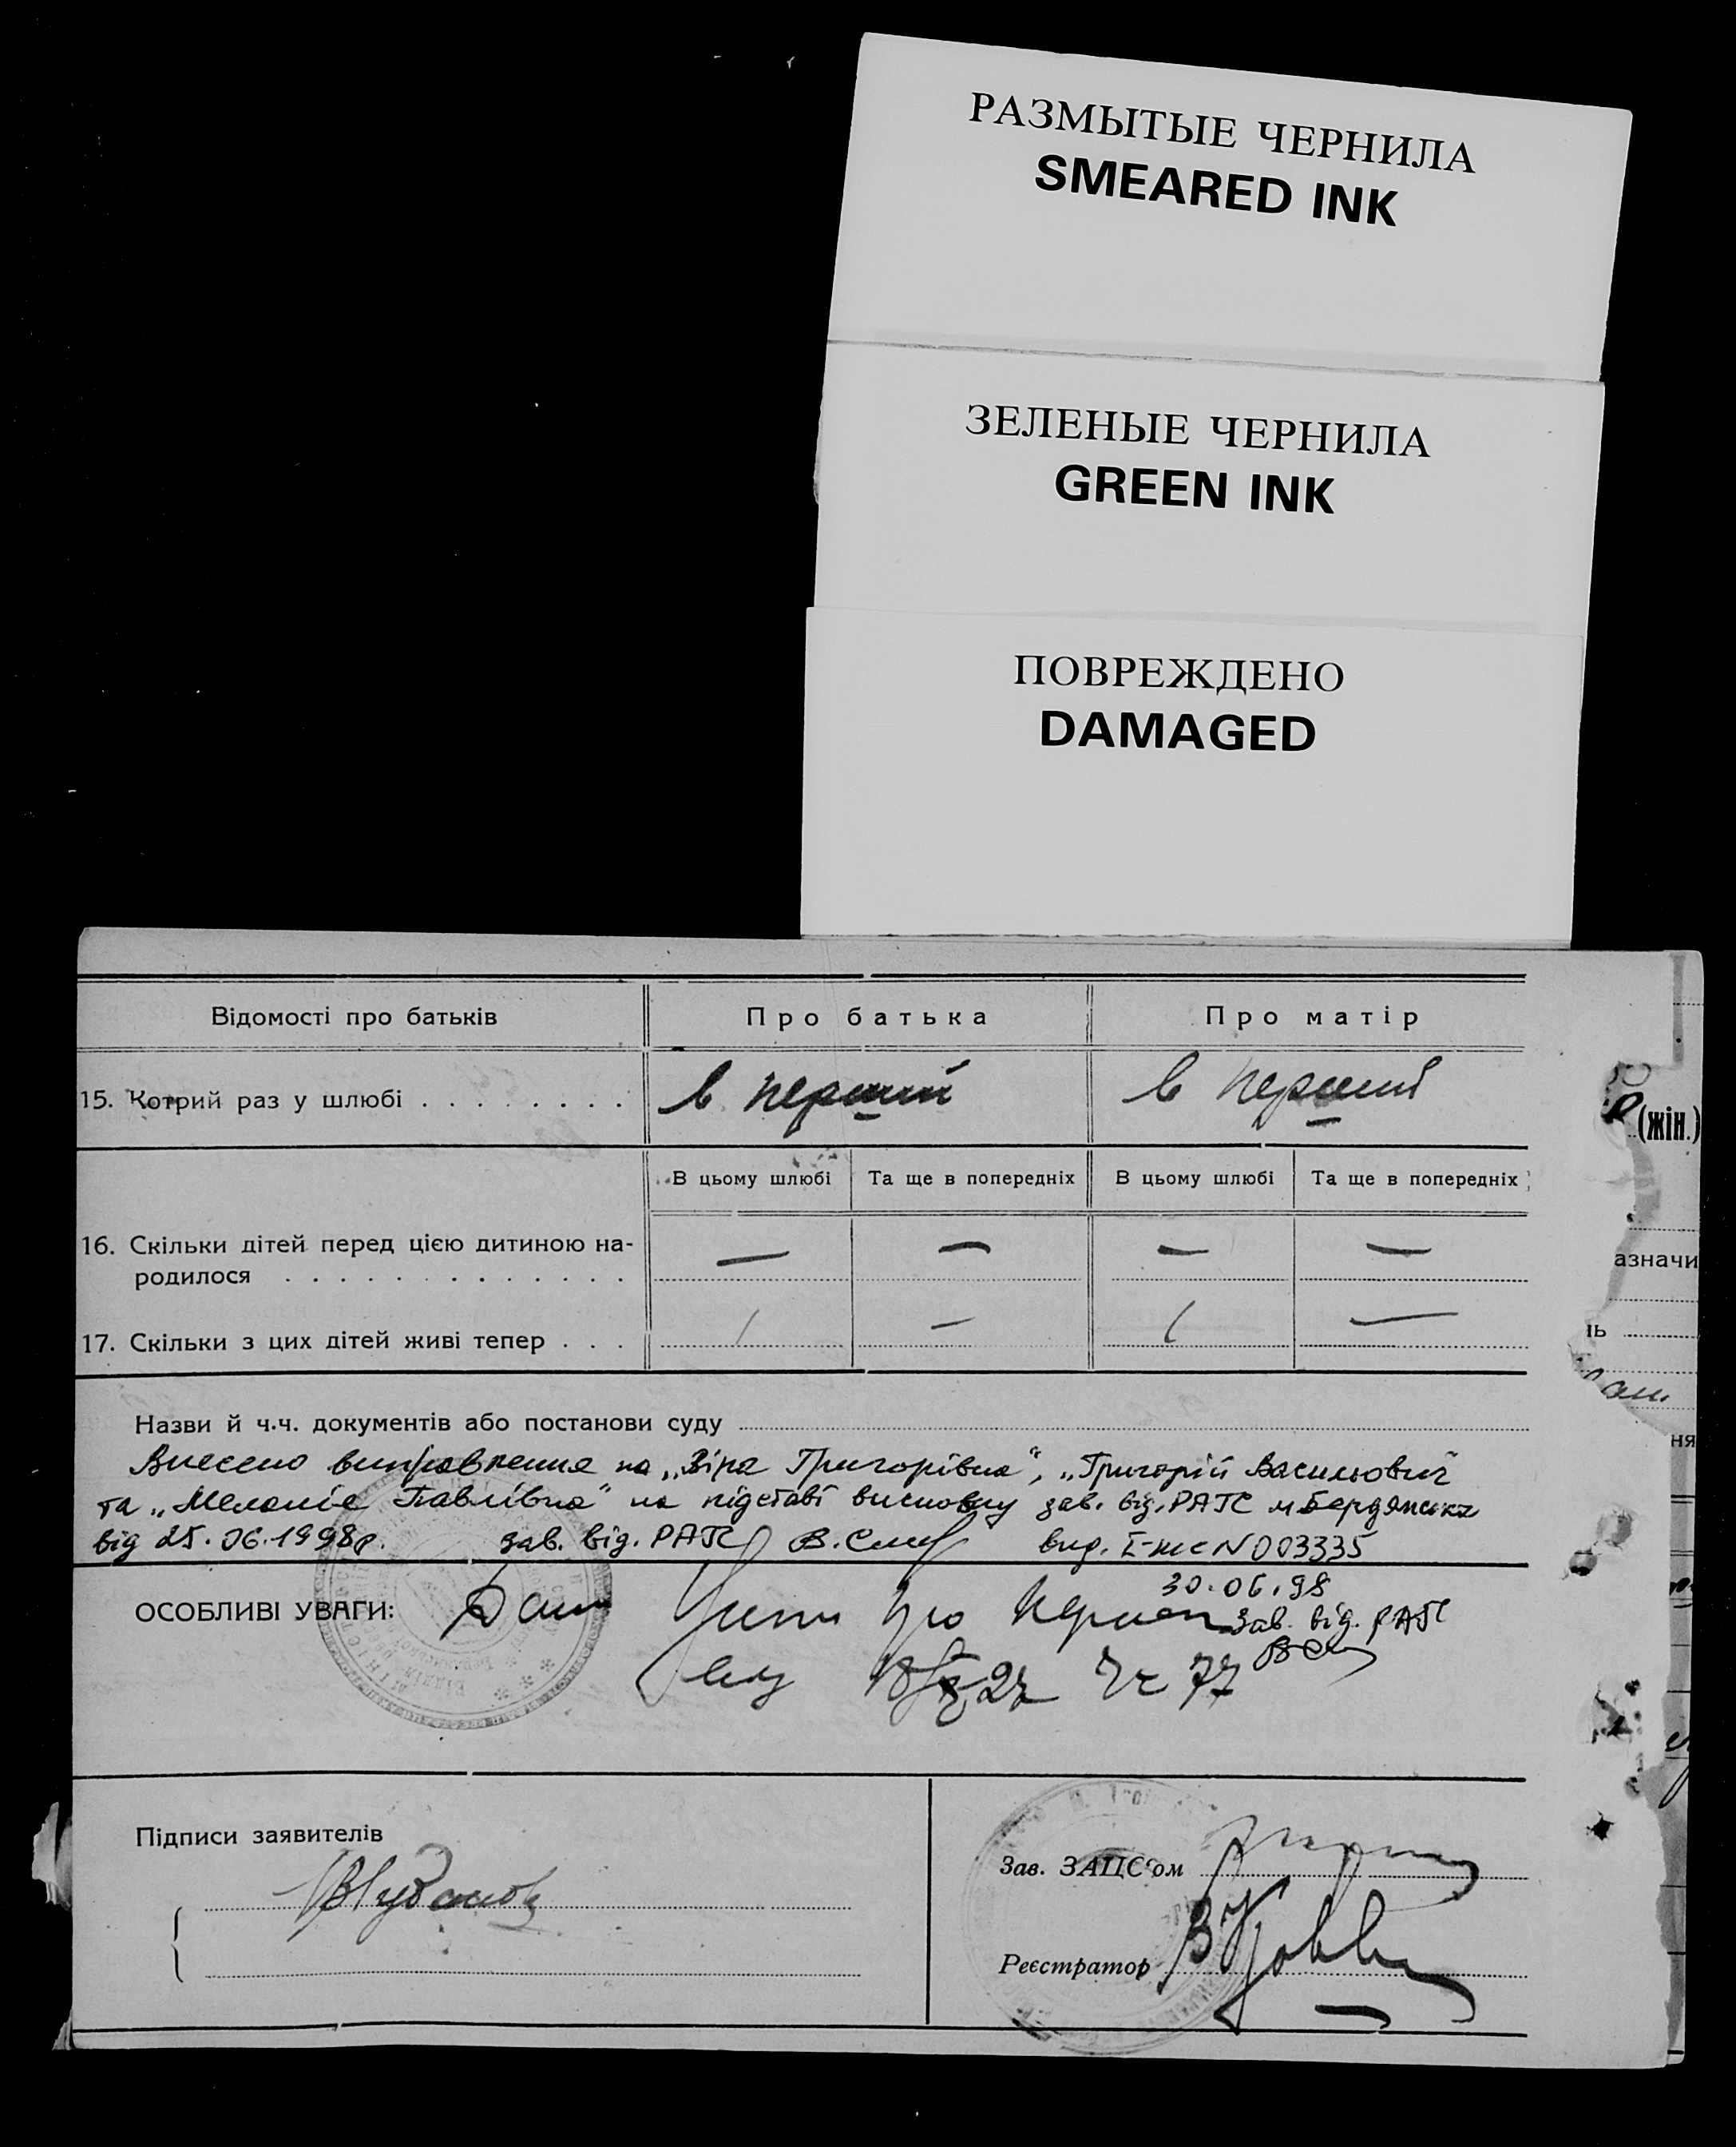 РАЗМЫТЫЕ ЧЕРНИЛА
SMEARED INK
ЗЕЛЕНЫЕ ЧЕРНИЛА
GREEN INK
ПОВРЕЖДЕНО
DAMAGED
Відомості про батьків Про батька Про матір
15. Котрий раз у шлюбі . . . . . . . . в перший в перший
В цьому шлюбі Та ще в попередніх В цьому шлюбі Та ще в попередніх
16. Скільки дітей перед цією дитиною на- — — — —
родилося . . . . . . . . . . . . .
17. Скільки з цих дітей живі тепер . . . 1 — 1 —
(жін.)
азначи
нь
ня
Назви й ч.ч. документів або постанови суду
Внесено виправлення на „Віра Григорівна", „Григорій Васильович"
та „Меланія Павлівна" на підставі висновку зав. від. РАГС м. Бердянська
від 25.06.1998р. зав. від. РАГС вид. І-жс N 003335
30.06.98
ОСОБЛИВІ УВАГИ: зав. від. РАГС
77
Підписи заявителів
Зав. ЗАЦС'ом
Реєстратор